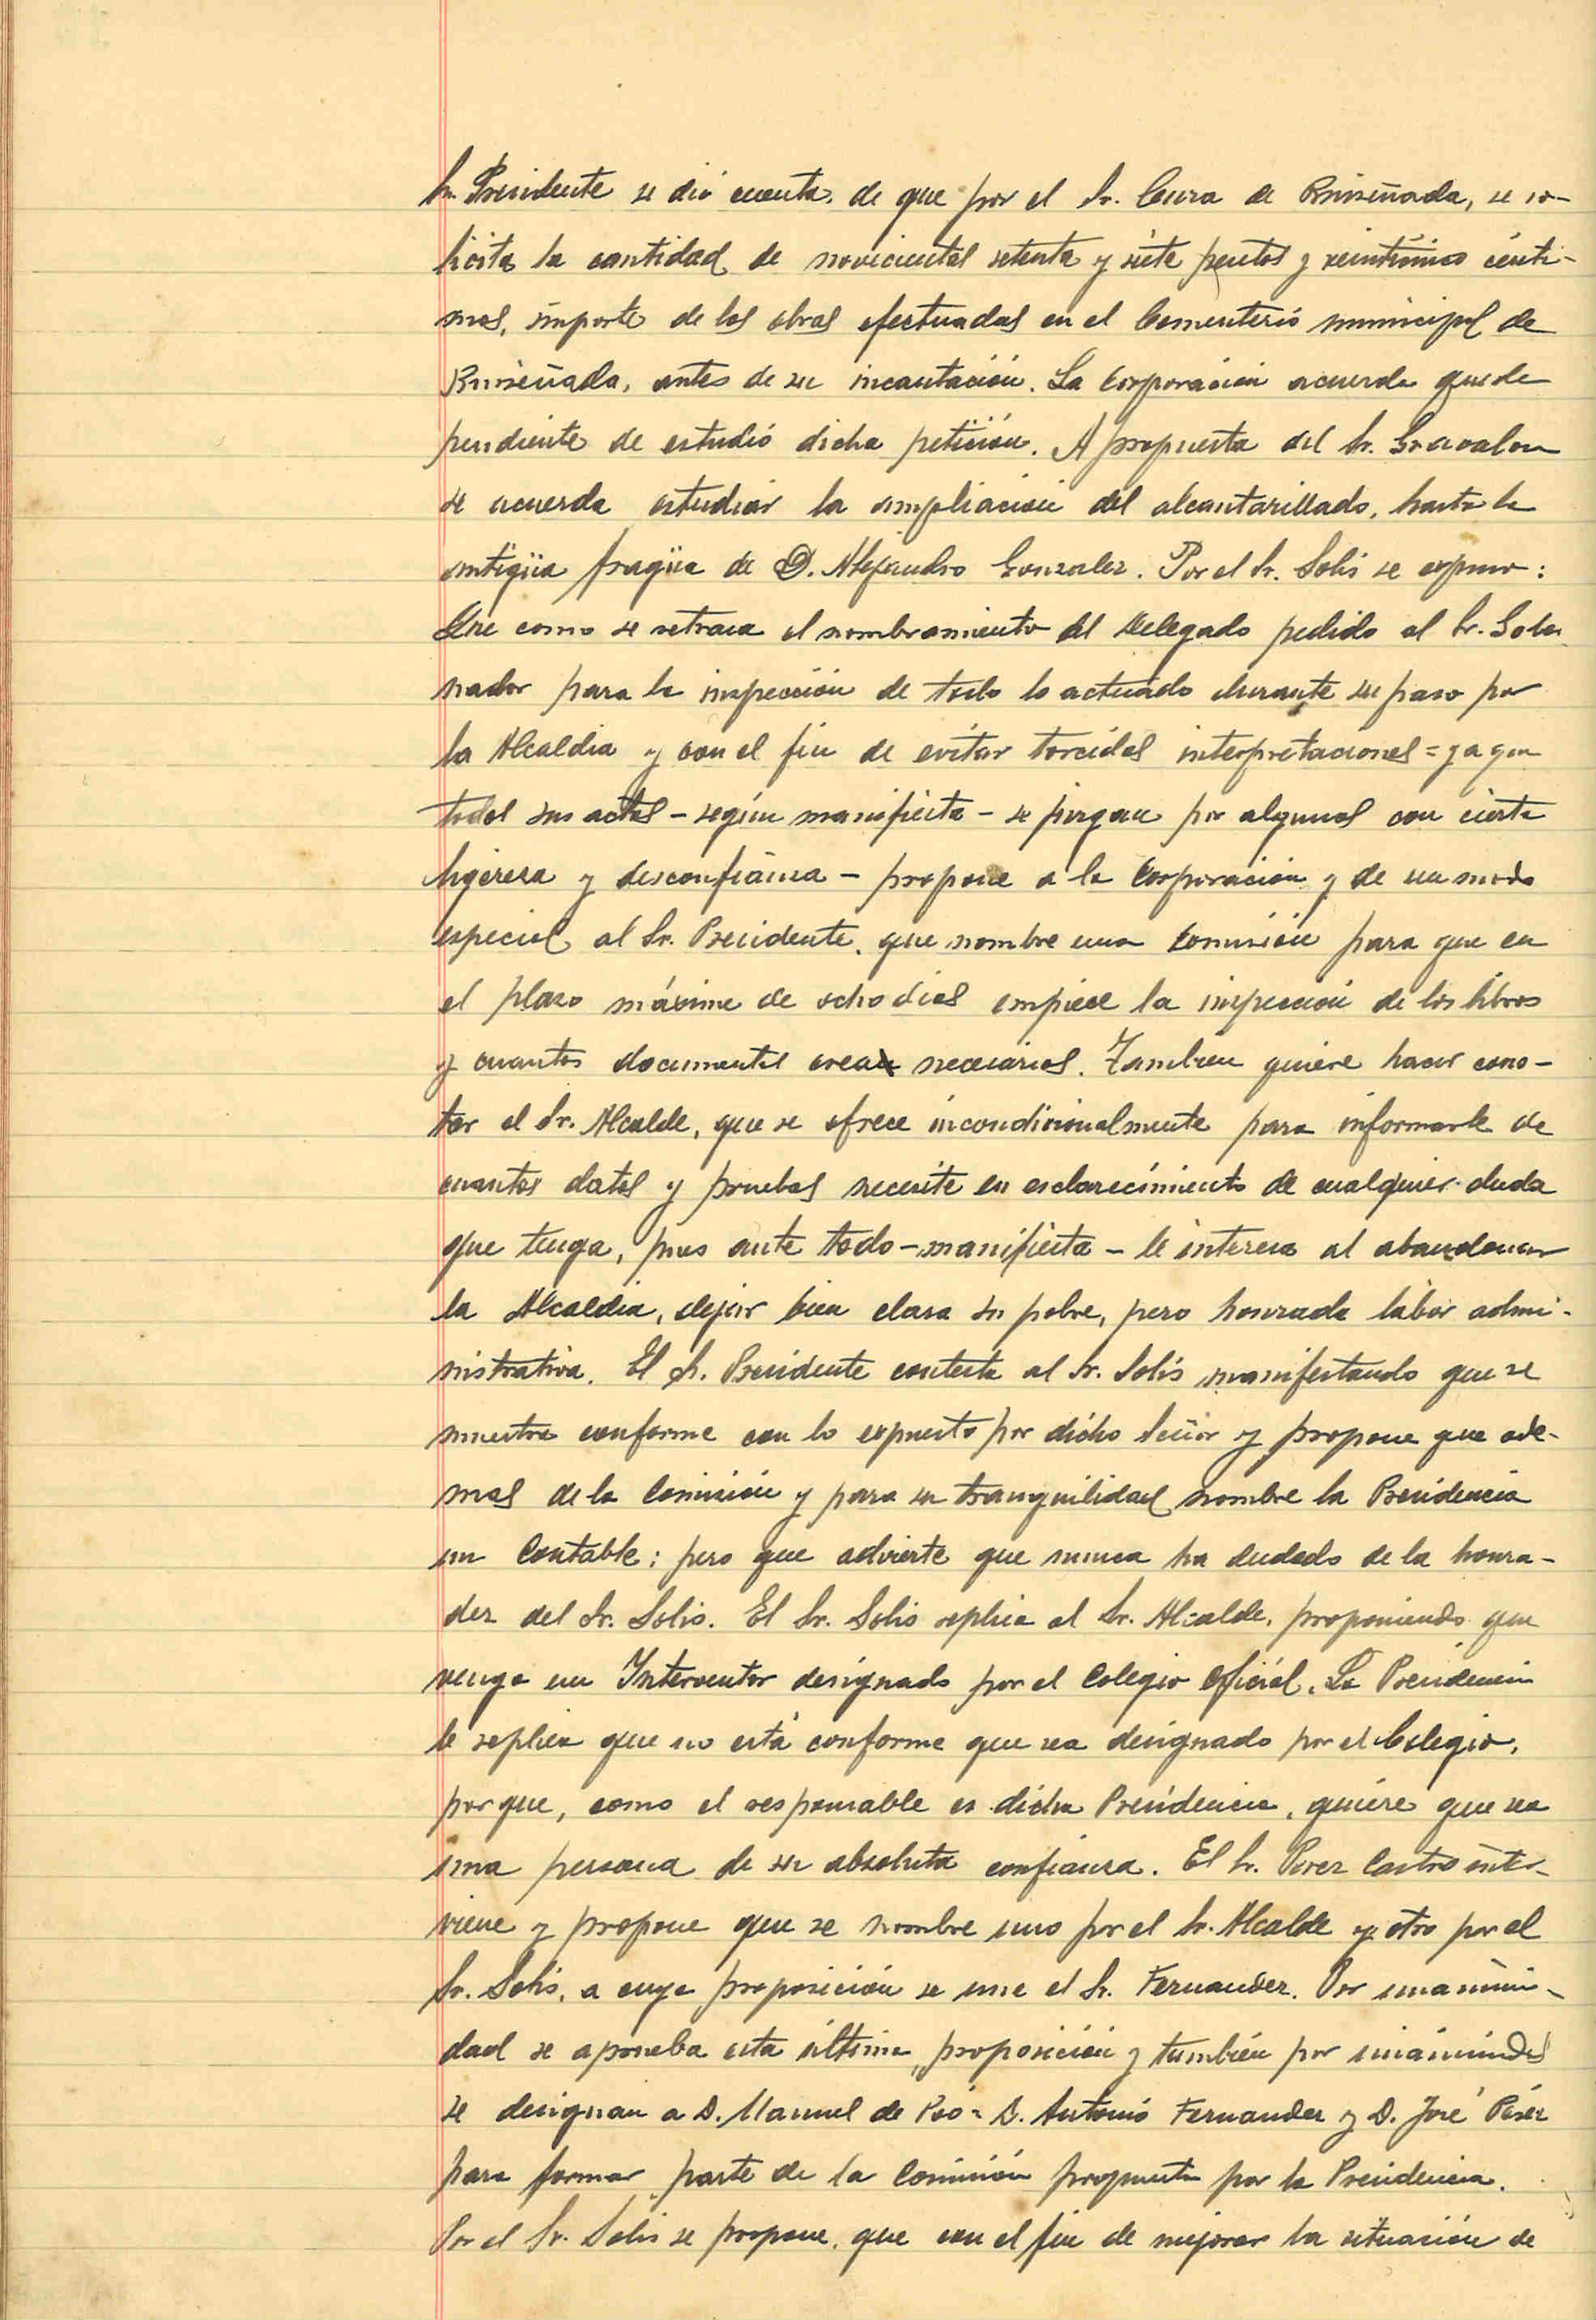 Sr. Presidente se dió cuenta, de que por el Sr. Cura de Ruiseñada, se so-
licita la cantidad de novecientas setenta y siete pesetas y veinticinco cénti-
mos, importe de las obras efectuadas en el Cementerio municipal de
Ruiseñada, antes de su incautación. La Corporación acuerda quede
pendiente de estudio dicha petición. A propuesta del Sr.
se acuerda estudiar la ampliación del alcantarillado, hasta la
antigüa fragüa de D. Alejandro Gonzalez. Por el Sr. Solís se expuso:
Que como se retrasa el nombramiento del Delegado pedido al Sr. Gober
nador para la inspección de todo lo actuado durante su paso por
la Alcaldia y con el fin de evitar torcidas interpretaciones = ya que
todos sus actos - según manifiesta - se juzgan por algunos con cierta
ligereza y desconfianza - propone a la Corporación y de un modo
especial al Sr. Presidente, que nombre una Comisión para que en
el plazo máximo de ocho dias empiece la inspección de los libros
y cuantos documentos crean necesarios. Tambien quiere hacer cons-
tar al Sr. Alcalde, que se ofrece incondicionalmente para informarle de
cuantos datos y pruebas necesite en esclarecimiento de cualquier duda
que tenga, pues ante todo - manifiesta - le interesa al abandonar
la Alcaldia, dejar bien clara su pobre, pero honrada labor admi-
nistrativa. El Sr. Presidente contesta al Sr. Solís manifestando que se
muestra conforme con lo expuesto por dicho Señor y propone que ade-
mas de la Comisión y para su tranquilidad nombre la Presidencia
un Contable; pero que advierte que nunca ha dudado de la honra-
dez del Sr. Solis. El Sr. Solis replica al Sr. Alcalde, proponiendo que
venga un Interventor designado por el Colegio Oficial. La Presidencia
le replica que no está conforme que sea designado por el Colegio,
porque, como el responsable es dicha Presidencia, quiere que sea
una persona de su absoluta confianza. El Sr. Perez Castro inter-
viene y propone que se nombre uno por el Sr. Alcalde y otro por el
Sr. Solis, a cuya proposición se une el Sr. Fernandez. Por unanimi-
dad se aprueba esta última proposición y también por unanimidad
se designan a D. Manuel de Pió = D. Antonio Fernandez y D. José Pérez
para formar parte de la Comisión propuesta por la Presidencia.
Por el Sr. Solis se propone, que con el fin de mejorar la situación de